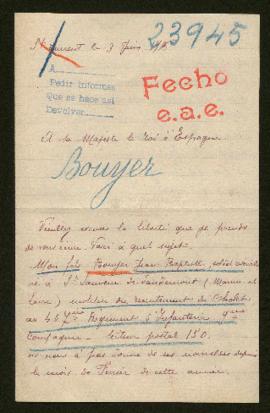 St Laurent le 3 Juin 1915
23945
A
Pedir informes
Que se hace así
Devolver
Fecho
e.a.e.
A sa Majesté le Roi d'Espagne
Bouyer
Veuillez excuser la liberté que je prends
de vous écrire. Voici à quel sujet.
Mon fils Bouyer Jean Baptiste soldat
né à St Laurent de (Maine et
Loire) du recrutement de Cholet
au Régiment d'Infanterie
Compagnie. Secteur postal 150.
ne nous a pas donné de ses nouvelles depuis
le mois de Février de cette année.